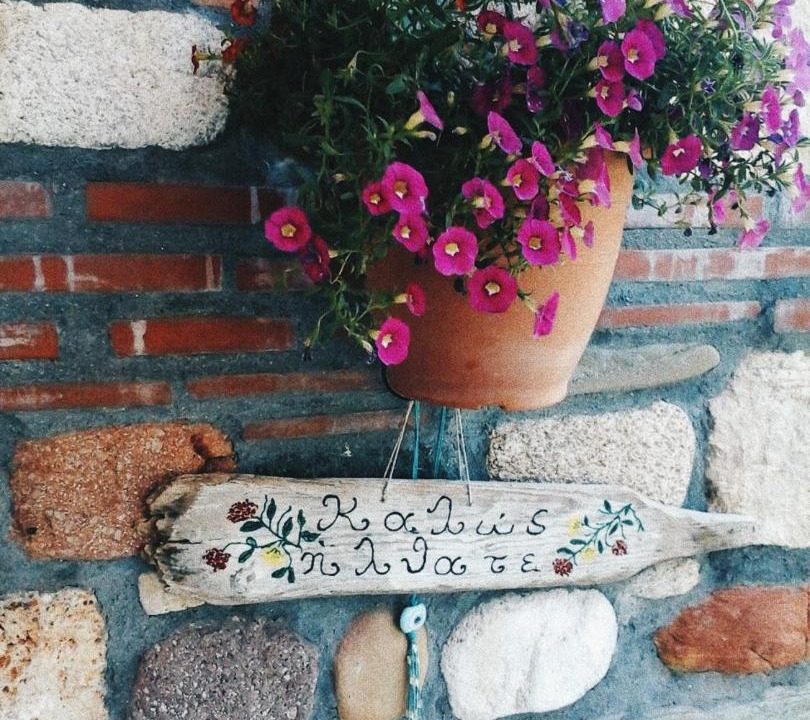 Καλώς
ήλθατε